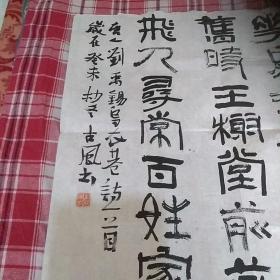 舊時王榭堂前
飛入尋常百姓家
唐劉禹錫烏衣巷詩一首
歲在癸未 古風書